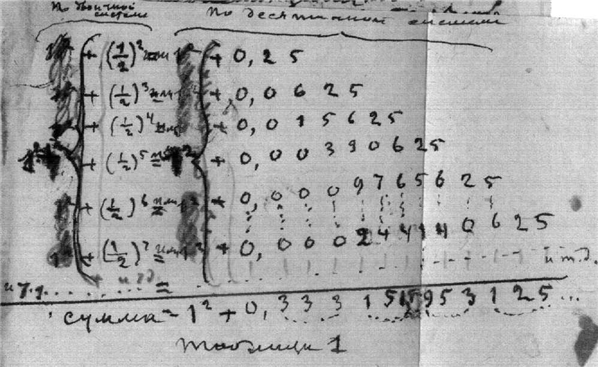 по двоичной системе по десятичной системе
+ (1/2)² или + 0,25
+ (1/2)³ или + 0,0625
+ (1/2)⁴ или + 0,015625
+ (1/2)⁵ или + 0,00390625
+ (1/2)⁶ или + 0,0009765625
+ (1/2)⁷ или + 0,000244140625
и т.д. и т.д. и т.д.
сумма = 1² + 0,33315953125...
таблица 1